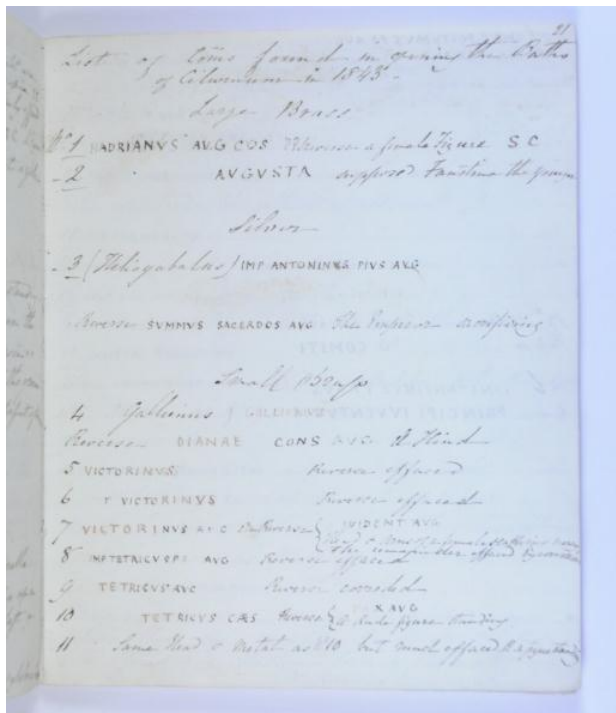 21
List of Coins found in opening the Baths
of Cilurnum in 1843 -
Large Brass
No 1 HADRIANVS AUG COS Reverse a female Figure S C
- 2 AVGVSTA supposed Faustina the younger
Silver
- 3 (Heliogabalus) IMP ANTONINVS PIVS AVG
Reverse SUMMVS SACERDOS AVG The Emperor sacrificing
Small Brass
4 Gallienus
Reverse DIANAE CONS AVG A Hind
5 VICTORINVS Reverse effaced
6 T VICTORINVS Reverse effaced
7 VICTORINVS AVG Reverse { IVIDENT AVG
the remainder effaced
8 IMP TETRICVS PF AVG Reverse effaced
9 TETRICVS AVG Reverse corroded
10 TETRICVS CÆS Reverse { X AVG
a nude figure standing
11 Same Head & Metal as No 10 but much effaced